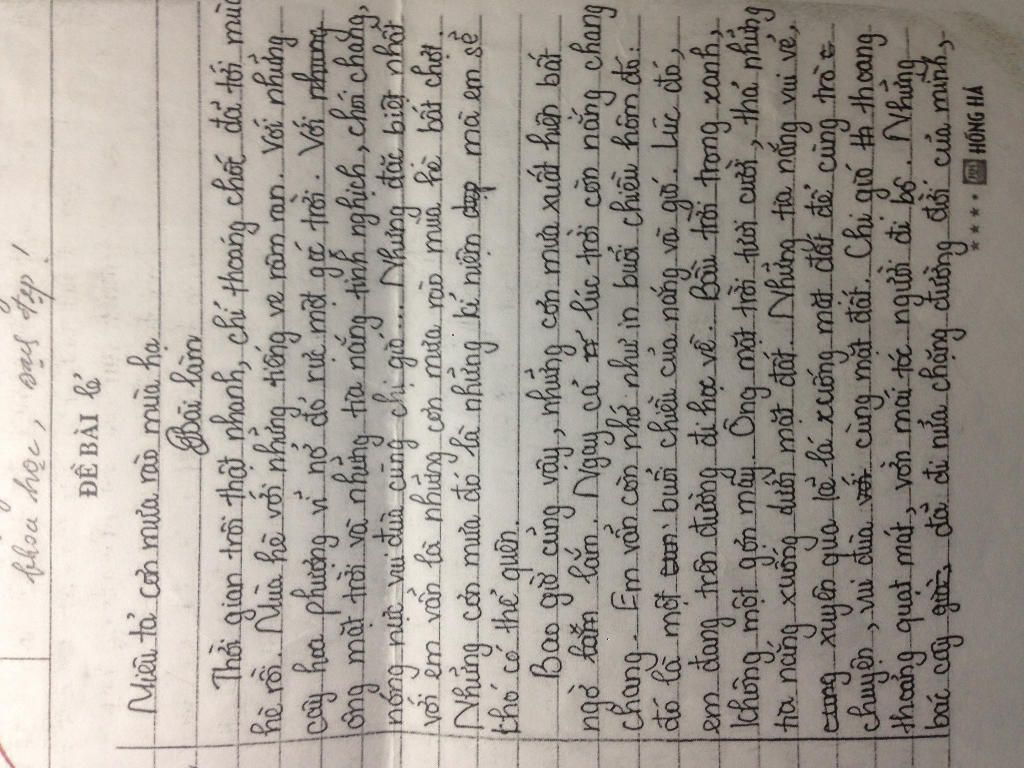 khoa học, sạch đẹp!
ĐỀ BÀI lẻ
Miêu tả cơn mưa rào mùa hạ
Bài làm
Thời gian trôi thật nhanh, chỉ thoáng chốc đã tới mùa
hè rồi. Mùa hè với những tiếng ve râm ran. Với những
cây hoa phượng vĩ nở đỏ rực một góc trời. Với
ông mặt trời và những tia nắng tinh nghịch, chói chang,
nóng nực vui đùa cùng chị gió... Nhưng đặc biệt nhất
với em vẫn là những cơn mưa rào mùa hè bất chợt.
Những cơn mưa đó là những kỉ niệm đẹp mà em sẽ
khó có thể quên.
Bao giờ cũng vậy, những cơn mưa xuất hiện bất
ngờ lắm. Ngay cả lúc trời còn nắng chang
chang. Em vẫn còn nhớ như in buổi chiều hôm đó:
đó là một buổi chiều của nắng và gió. Lúc đó,
em đang trên đường đi học về. Bầu trời trong xanh,
không một gợn mây. Ông mặt trời tươi cười, thả những
tia nắng xuống dưới mặt đất. Những tia nắng vui vẻ,
xuyên qua kẽ lá xuống mặt đất để cùng trò
chuyện, vui đùa với cùng mặt đất. Chị gió thoang
thoảng quạt mát, vờn mái tóc người đi bộ. Những
bác cây già, đã đi nửa chặng đường đời của mình,
HỒNG HÀ